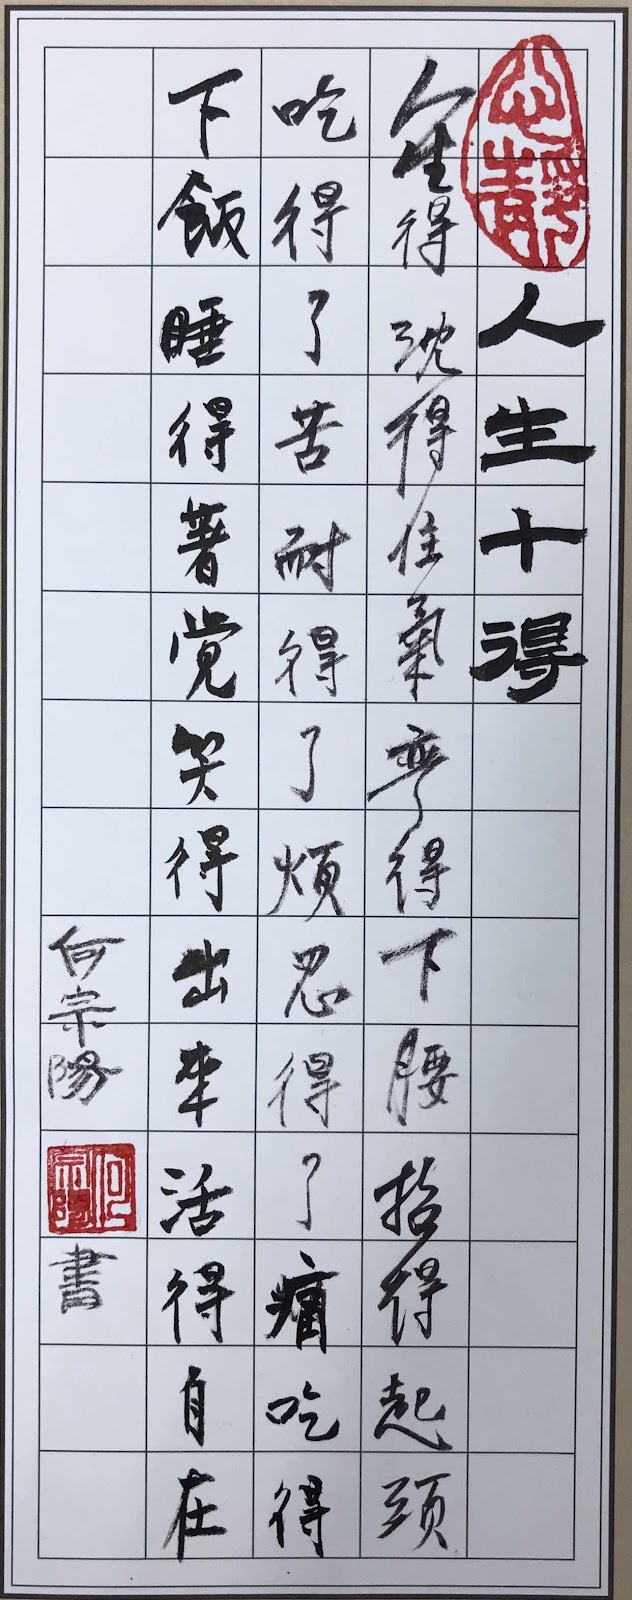 心靜
人生十得
人生得沈得住氣彎得下腰抬得起頭
吃得了苦耐得了煩忍得了痛吃得
下飯睡得著覺笑得出來活得自在
何宗陽
何宗陽
書